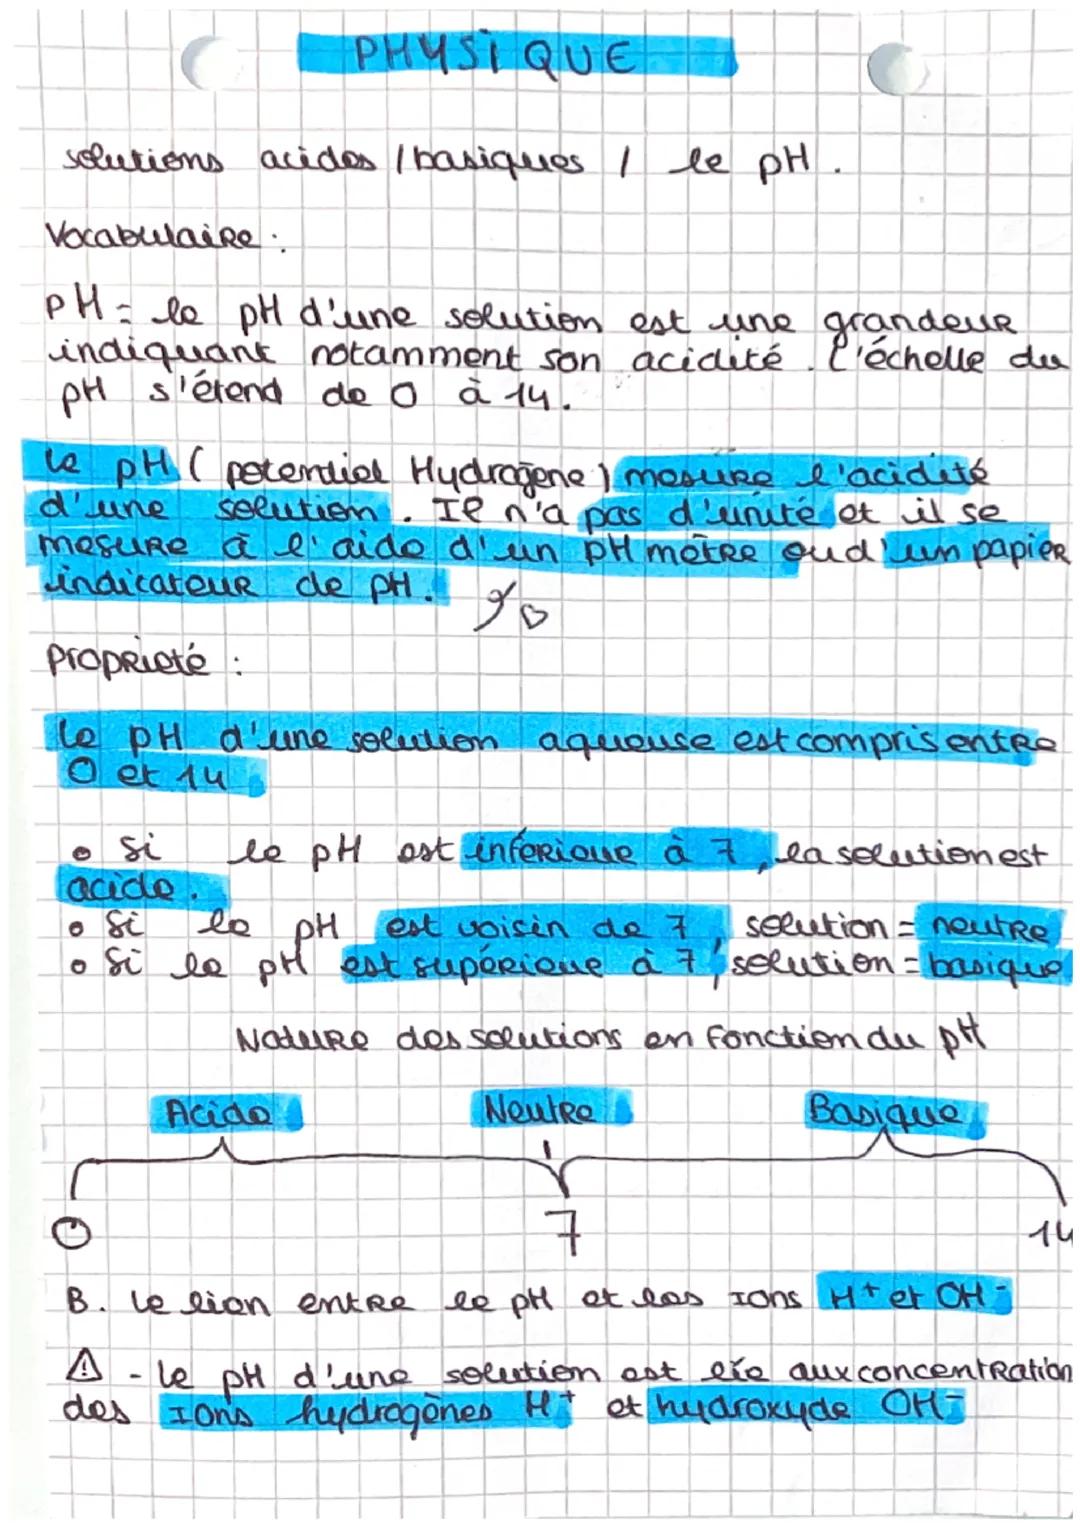 PHYSIQUE
solutions acides / basiques / le pH.
Vocabulaire :
pH = le pH d'une solution est une grandeur
indiquant notamment son acidité. L'échelle du
pH s'étend de 0 à 14.
Le pH (potentiel Hydrogène) mesure l'acidité
d'une solution. Il n'a pas d'unité et il se
mesure à l'aide d'un pH mètre ou d'un papier
indicateur de pH.
Propriété :
Le pH d'une solution aqueuse est compris entre
0 et 14
• Si le pH est inférieur à 7, la solution est
acide.
• Si le pH est voisin de 7, solution = neutre
• Si le pH est supérieur à 7, solution = basique
Nature des solutions en fonction du pH
Acide Neutre Basique
0 7 14
B. Le lien entre le pH et les Ions H+ et OH-
⚠ - Le pH d'une solution est liée aux concentration
des Ions hydrogènes H+ et hydroxyde OH-